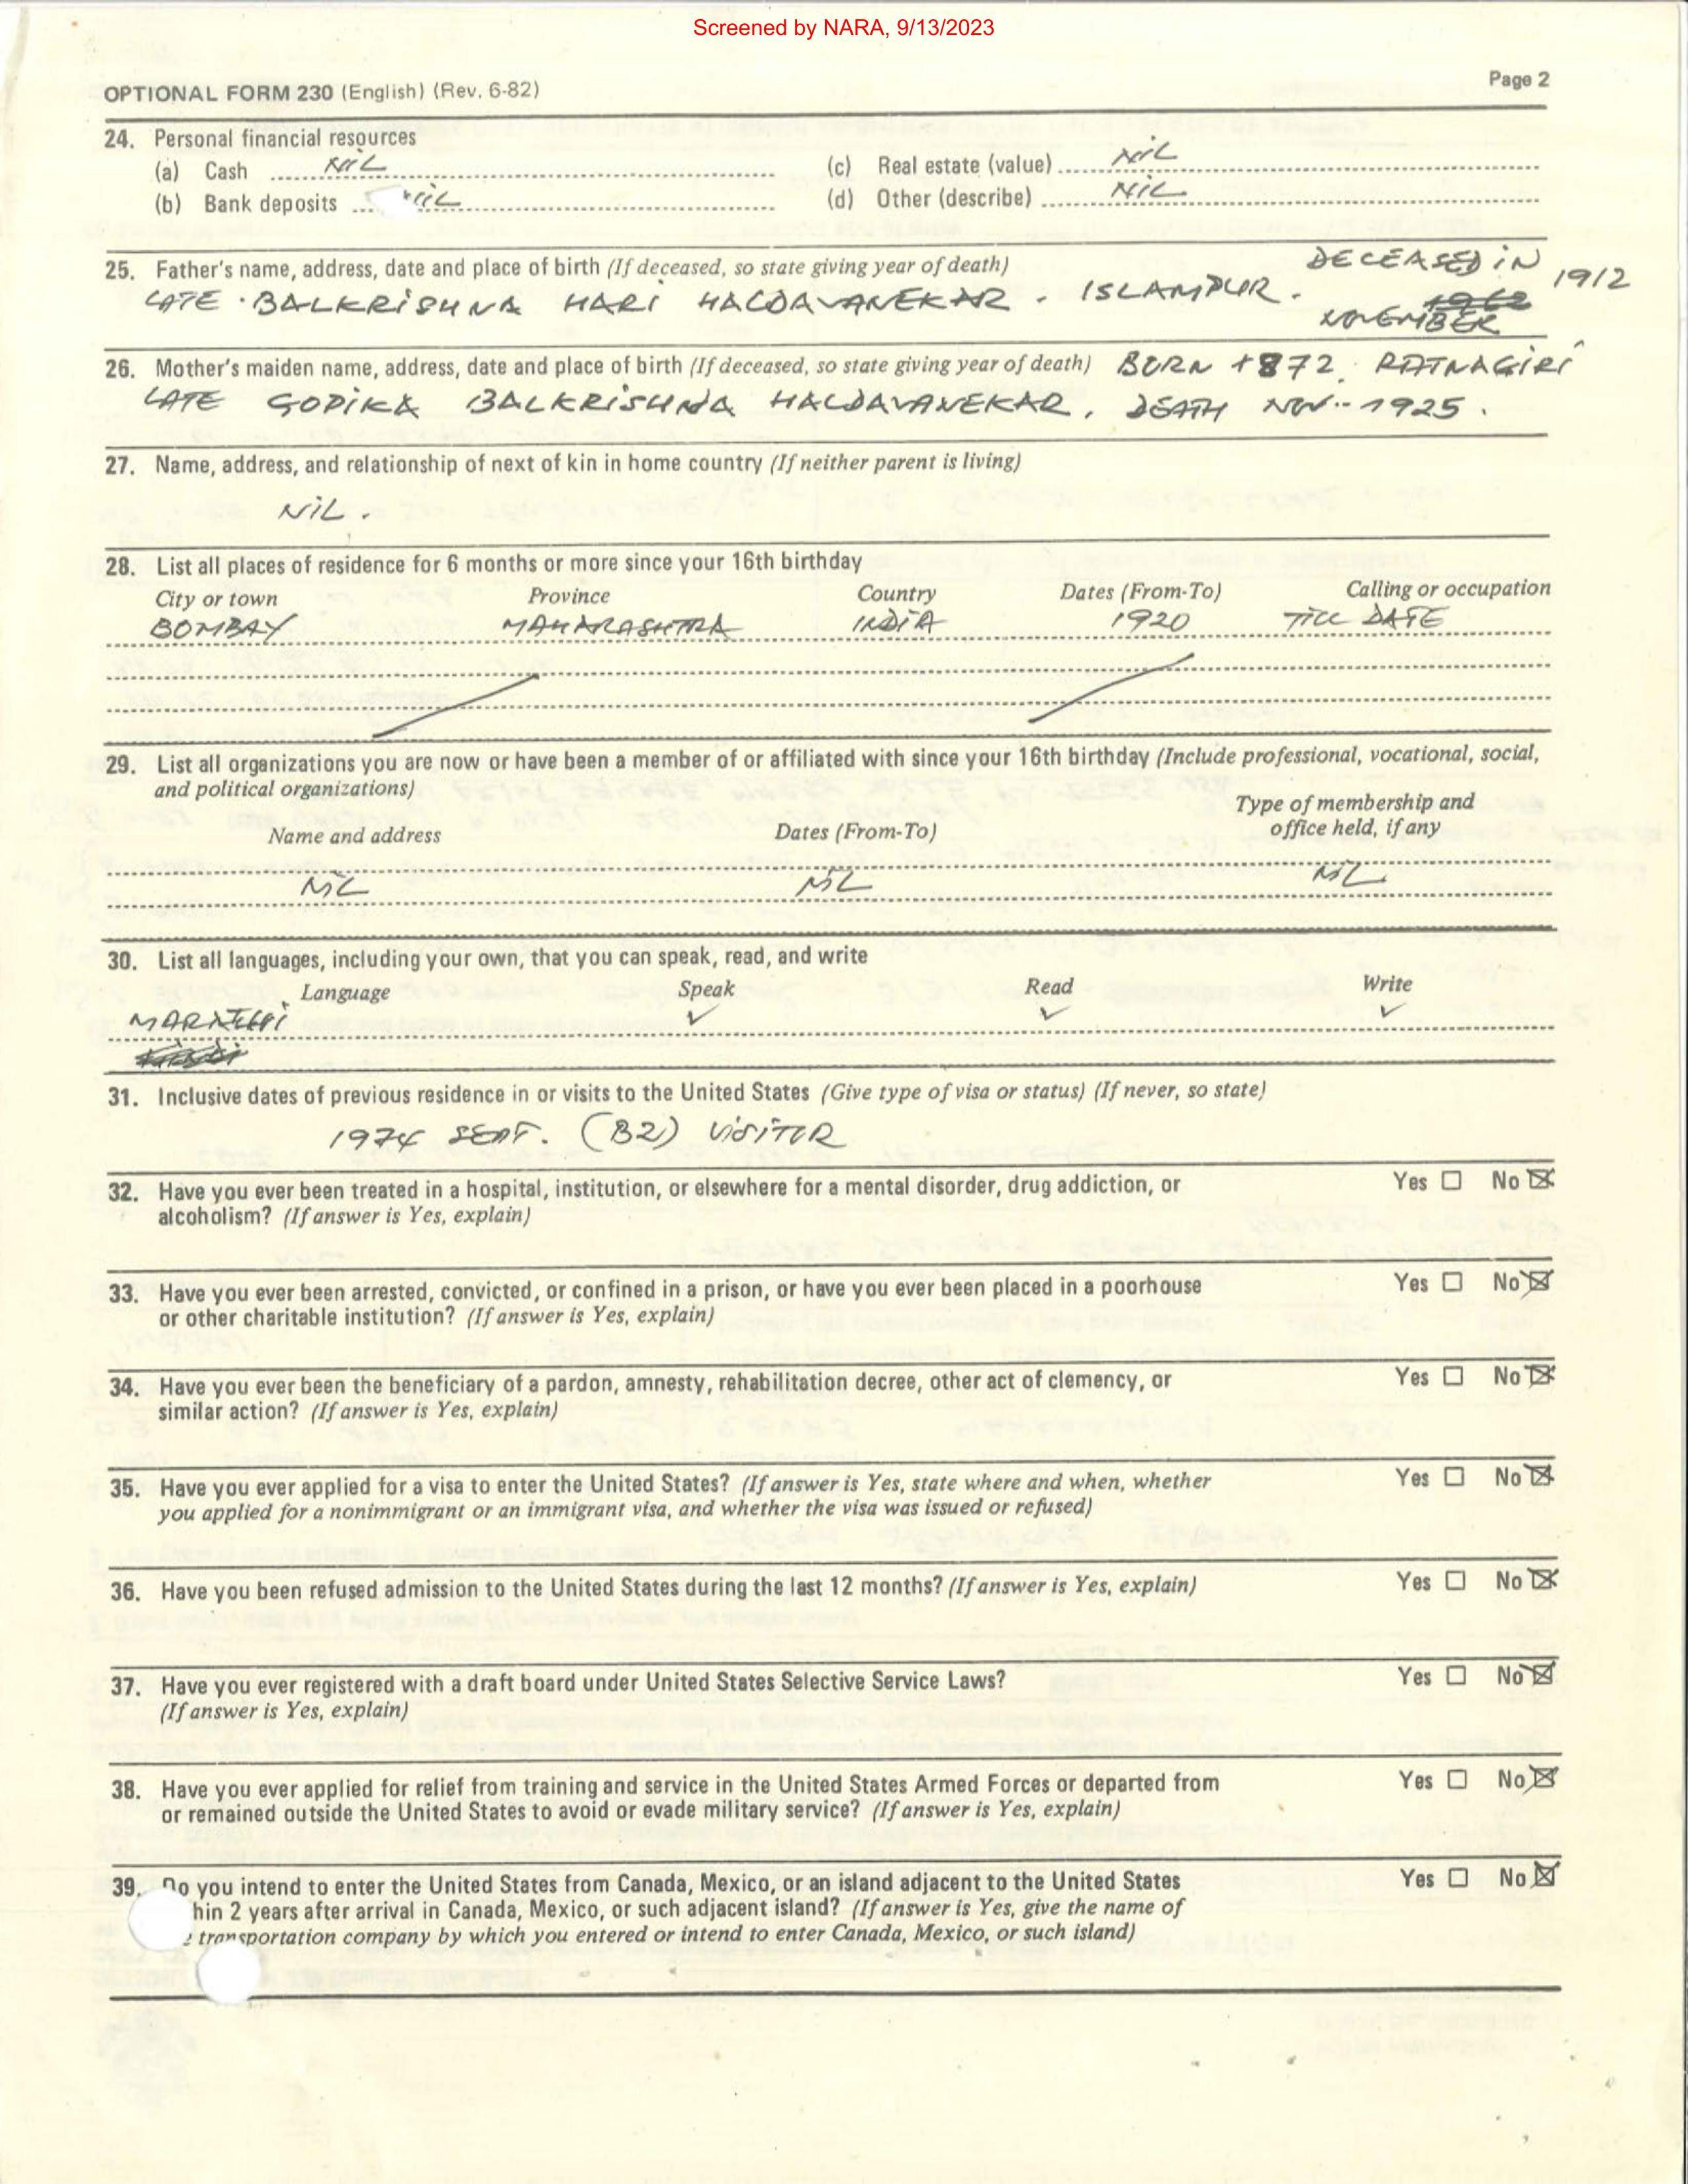 Screened by NARA, 9/13/2023
OPTIONAL FORM 230 (English) (Rev. 6-82)
Page 2
24. Personal financial resources
(a) Cash NIL
(c) Real estate (value) NIL
(b) Bank deposits NIL
(d) Other (describe) NIL
25. Father's name, address, date and place of birth (If deceased, so state giving year of death) DECEASED IN 1912
LATE . BALKRISHNA HARI HALDAVANEKAR . ISLAMPUR . NOVEMBER
26. Mother's maiden name, address, date and place of birth (If deceased, so state giving year of death) BORN 1872. RATNAGIRI
LATE GOPIKA BALKRISHNA HALDAVANEKAR, DEATH NOV-- 1925 .
27. Name, address, and relationship of next of kin in home country (If neither parent is living)
NIL .
28. List all places of residence for 6 months or more since your 16th birthday
City or town Province Country Dates (From-To) Calling or occupation
BOMBAY MAHARASHTRA INDIA 1920 TILL DATE
29. List all organizations you are now or have been a member of or affiliated with since your 16th birthday (Include professional, vocational, social,
and political organizations)
Name and address Dates (From-To) Type of membership and
office held, if any
NIL NIL NIL
30. List all languages, including your own, that you can speak, read, and write
Language Speak Read Write
MARATHI ✓ ✓ ✓
31. Inclusive dates of previous residence in or visits to the United States (Give type of visa or status) (If never, so state)
1974 SEPT. (B2) VISITOR
32. Have you ever been treated in a hospital, institution, or elsewhere for a mental disorder, drug addiction, or Yes ☐ No ☒
alcoholism? (If answer is Yes, explain)
33. Have you ever been arrested, convicted, or confined in a prison, or have you ever been placed in a poorhouse Yes ☐ No ☒
or other charitable institution? (If answer is Yes, explain)
34. Have you ever been the beneficiary of a pardon, amnesty, rehabilitation decree, other act of clemency, or Yes ☐ No ☒
similar action? (If answer is Yes, explain)
35. Have you ever applied for a visa to enter the United States? (If answer is Yes, state where and when, whether Yes ☐ No ☒
you applied for a nonimmigrant or an immigrant visa, and whether the visa was issued or refused)
36. Have you been refused admission to the United States during the last 12 months? (If answer is Yes, explain) Yes ☐ No ☒
37. Have you ever registered with a draft board under United States Selective Service Laws? Yes ☐ No ☒
(If answer is Yes, explain)
38. Have you ever applied for relief from training and service in the United States Armed Forces or departed from Yes ☐ No ☒
or remained outside the United States to avoid or evade military service? (If answer is Yes, explain)
39. Do you intend to enter the United States from Canada, Mexico, or an island adjacent to the United States Yes ☐ No ☒
hin 2 years after arrival in Canada, Mexico, or such adjacent island? (If answer is Yes, give the name of
transportation company by which you entered or intend to enter Canada, Mexico, or such island)